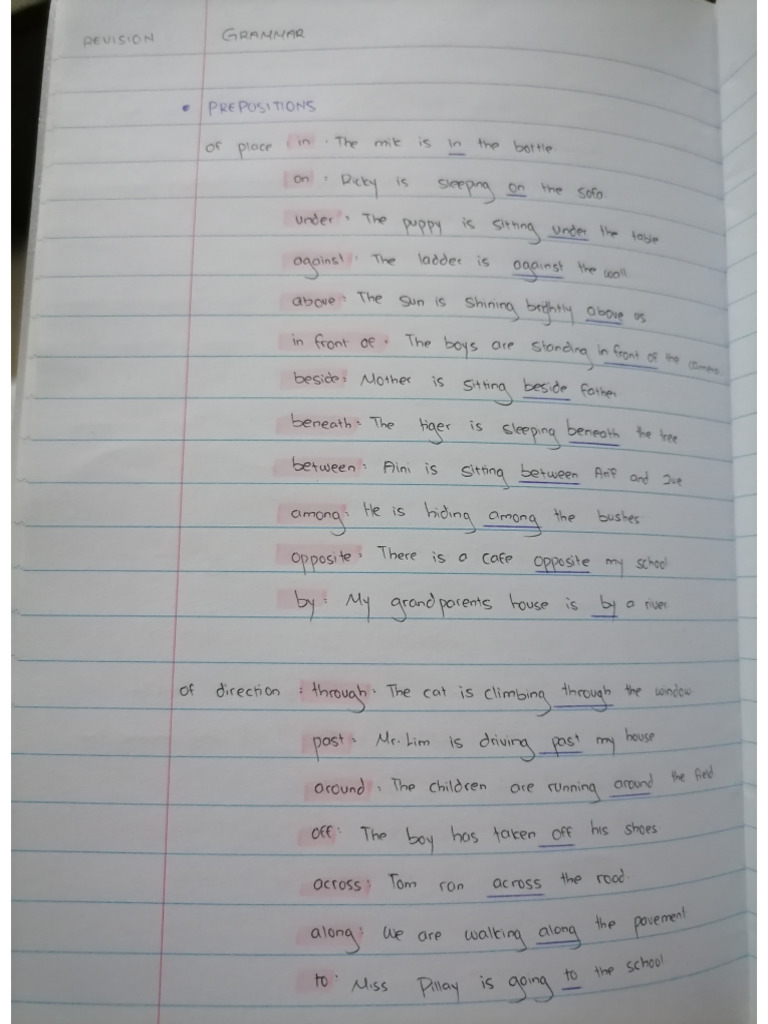 REVISION GRAMMAR
• PREPOSITIONS
of place in : The milk is in the bottle
on : Ricky is sleeping on the sofa
under : The puppy is sitting under the table
against : The ladder is against the wall
above : The sun is shining brightly above us
in front of : The boys are standing in front of the camera
beside : Mother is sitting beside father
beneath : The tiger is sleeping beneath the tree
between : Aini is sitting between Arif and Jue
among : He is hiding among the bushes
opposite : There is a cafe opposite my school
by : My grandparents house is by a river
of direction : through : The cat is climbing through the window
past : Mr. Lim is driving past my house
around : The children are running around the field
off : The boy has taken off his shoes
across : Tom ran across the road.
along : We are walking along the pavement
to : Miss Pillay is going to the school